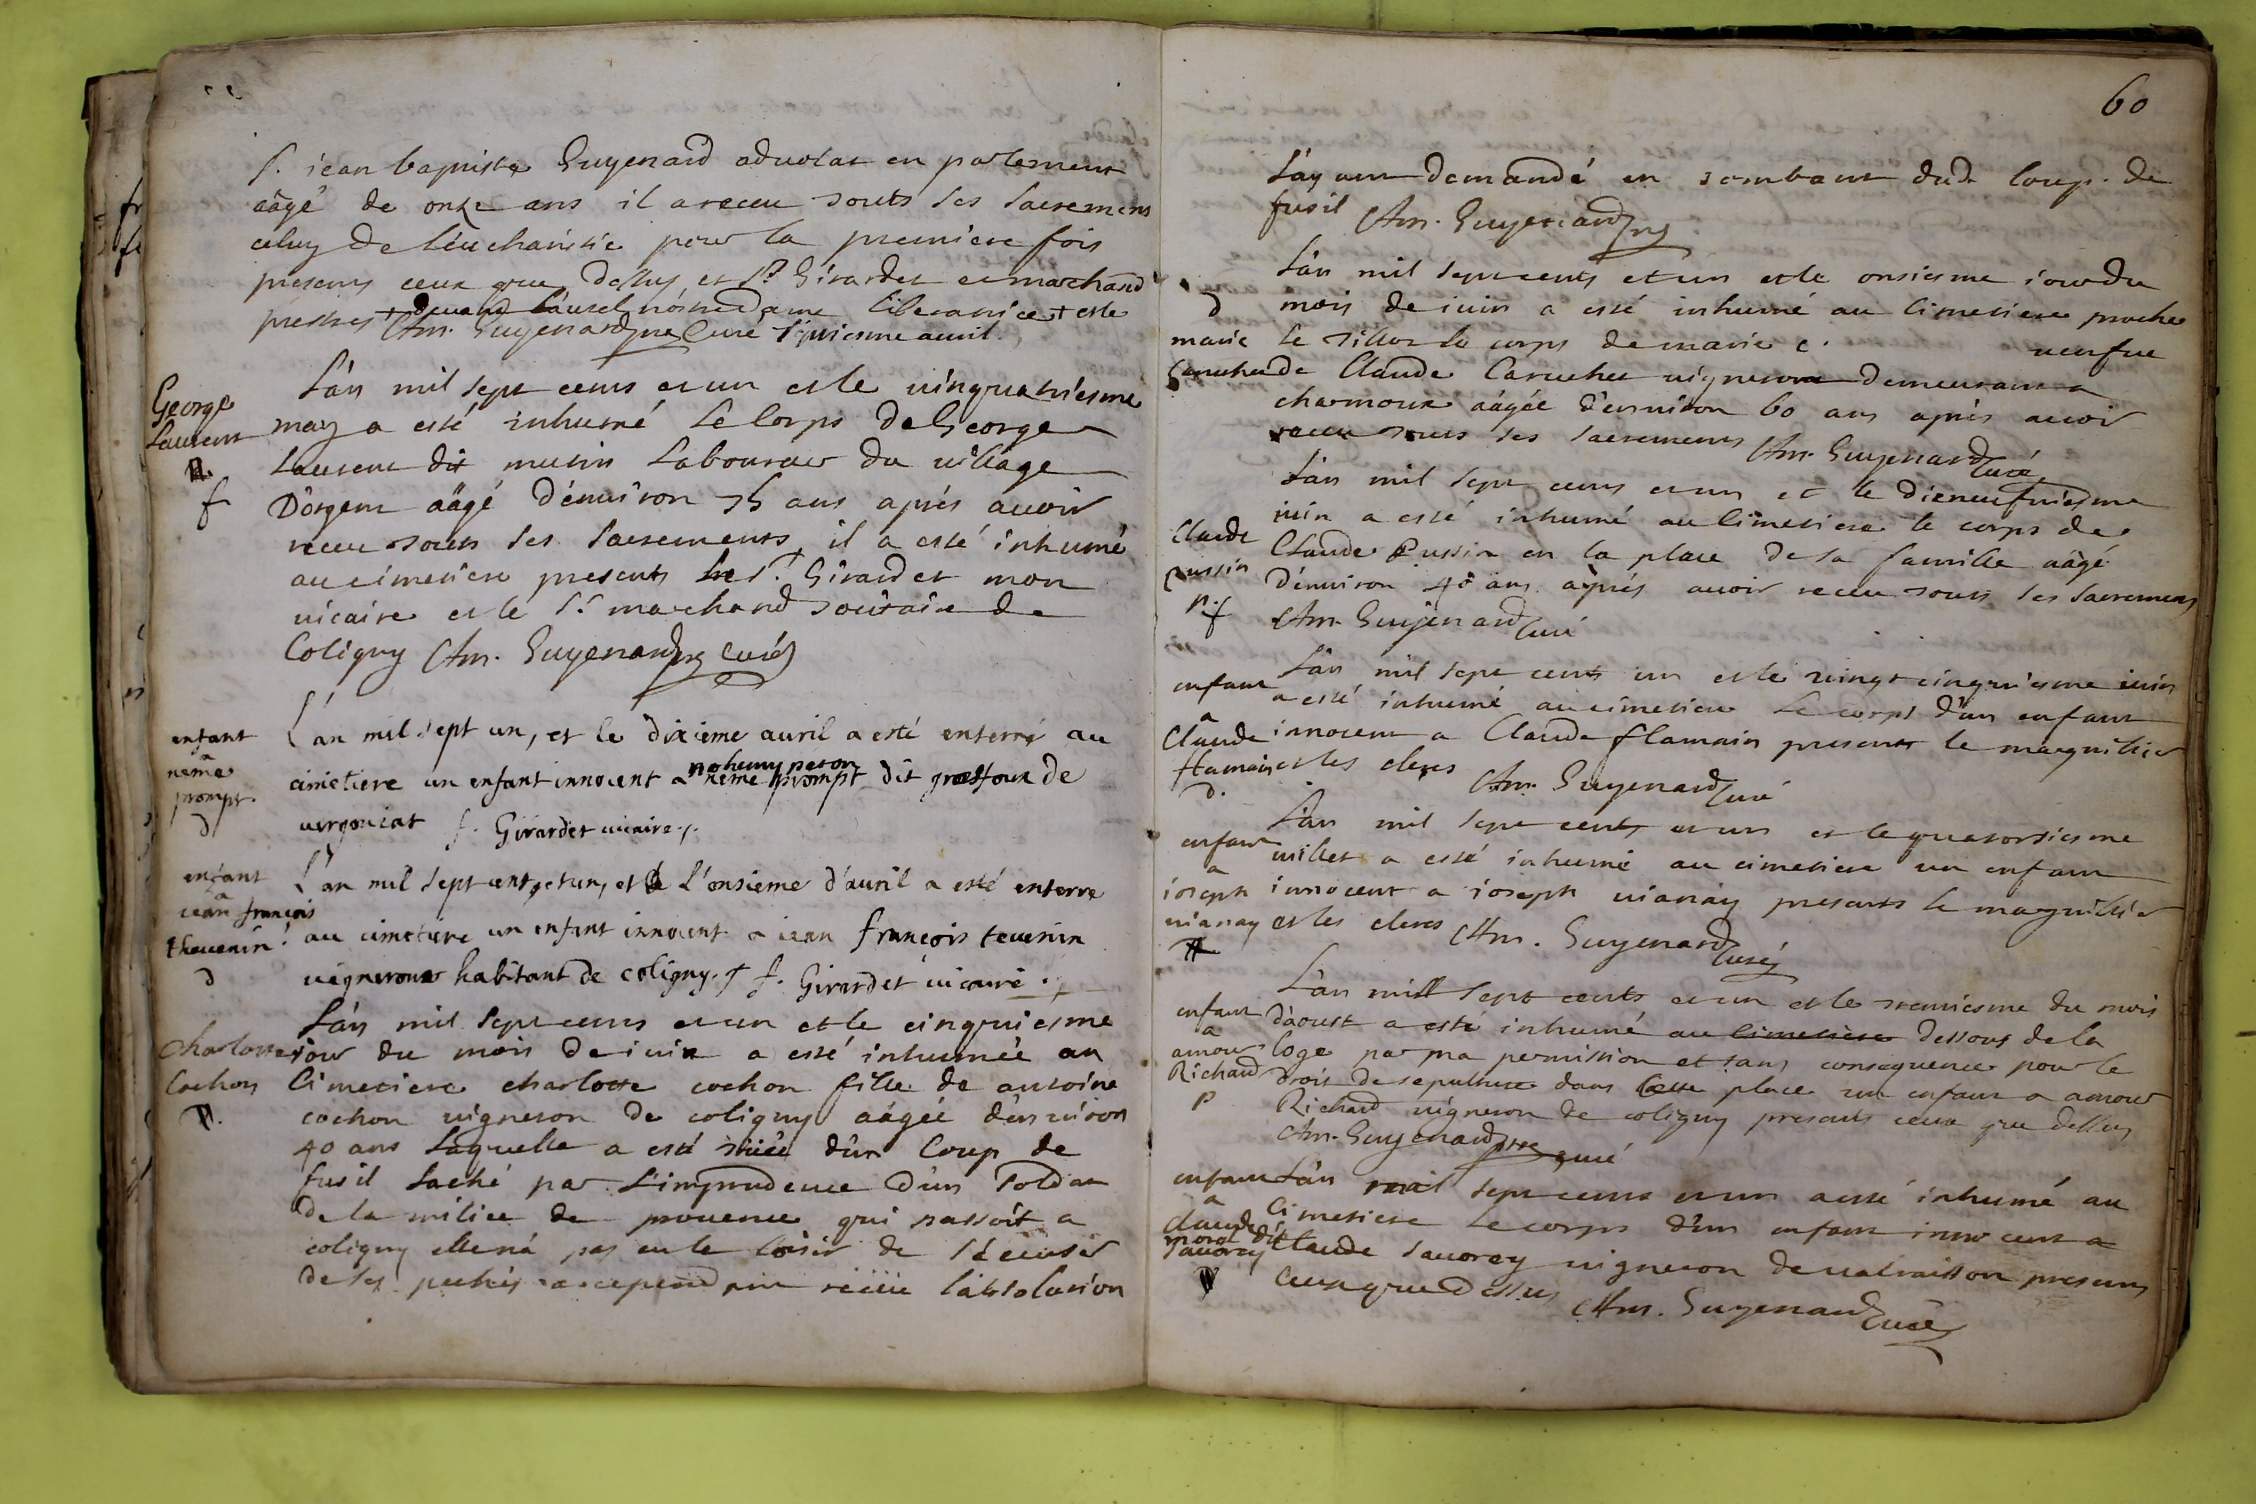 S. iean baptiste Guyenard aduocat en parlement
aâgé de onze ans il a receu touts les sacremens
celuy de l'eucharistie pour la premiere fois
presens ceux que dessus et Sr. Girardet et marchand
prestres + deuand l'autel nostre dame liberatrice + et le
Am. Guyenard pre Curé auril.
George
Laurent
f
L'an mil sept cents et un et le uingquatriesme
may a esté inhumé le Corps de George
Laurent dit mutin Laboureur du uillage
D'orgent aâgé d'enuiron 75 ans aprés auoir
receu touts les sacrements, il a esté inhumé
au cimetiere presents Sr. Girardet mon
uicaire et le Sr marchand de
Coligny Am. Guyenard pre Curé
enfant
a
neme
prompt.
d
L'an mil sept un, et le dixieme auril a esté enterré au
cimetiere un enfant innocent a neme prompt dit de
f. Girardet uicaire.
enfant
a
iean françois
theuenin.
d
L'an mil sept cent et un, et L'onsieme d'auril a esté enterre
au cimetiere un enfant innocent a iean françois teuenin
uigneron habitant de coligny. f. Girardet uicaire.
Charlotte
Cochon
L'an mil sept cents et un et le cinquiesme
iour du mois de iuin a esté inhumée au
Cimetiere charlotte cochon fille de antoine
cochon uigneron de coligny aâgée d'enuiron
40 ans Laquelle a esté tüée d'un Coup de
fusil laché par L'imprudence d'un soldat
de la milice de prouence qui passoit a
coligny elle n'a pas eu le loisir de s'écuser
de ses pechés a cependant recüe l'absolution
60
L'ayant demandé en tombant dud. Coup de
fusil Am. Guyenard pre
d
marie
Caruchet
L'an mil sept cents et un et le onsiesme iour du
mois de iuin a esté inhumé au Cimetiere proche
le le corps de marie c. ueufue
de Claude Caruchet uigneron demeurant a
charmoux aâgée d'enuiron 60 ans aprés auoir
receu touts les sacrements Am. Guyenard Curé
Claude
Pussin
p.
f
L'an mil sept cents et un et le dieneufuiesme
iuin a esté inhumé au Cimetiere le corps de
Claude Pussin en la place de sa famille aâgé
d'enuiron 40 ans aprés auoir receu touts les sacremens
Am. Guyenard Curé
enfant
a
Claude
flamain
d.
L'an mil sept cents un et le uingt cinquiesme iuin
a esté inhumé au cimetiere Le corps d'un enfant
innocent a Claude flamain presents le marguillier
et les clercs Am. Guyenard Curé
enfant
a
ioseph
uianay
L'an mil sept cents et un et le quatorsiesme
iuillet a esté inhumé au cimetiere un enfant
innocent a ioseph uianay presents le marguillier
et les clercs Am. Guyenard Curé
enfant
a
amour
Richard
P
L'an mill sept cents et un et le du mois
d'aoust a esté inhumé au cimetiere dessous de la
loge par ma permission et sans consequence pour le
droit de sepulture dans Cette place un enfant a amour
Richard uigneron de coligny presents ceux que dessus
Am. Guyenard pre curé
enfant
a
claude
morel dit
Sauorey
L'an mil sept cents et un a esté inhumé au
Cimetiere le corps d'un enfant innocent a
Claude Sauorey uigneron de presens
Ceux que dessus Am. Guyenard Curé